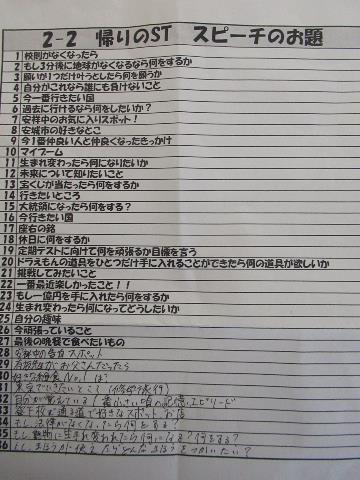 2-2 帰りのST スピーチのお題
1 校則がなくなったら
2 もし3分後に地球がなくなるなら何をするか
3 願いが1つだけ叶うとしたら何を願うか
4 自分がこれなら誰にも負けないこと
5 今一番行きたい国
6 過去に行けるなら何をしたいか？
7 安祥中のお気に入りスポット！
8 安城市の好きなとこ
9 今1番仲良い人と仲良くなったきっかけ
10 マイブーム
11 生まれ変わったら何になりたいか
12 未来について知りたいこと
13 宝くじが当たったら何をするか
14 行きたいところ
15 大統領になったら何をする？
16 今行きたい国
17 座右の銘
18 休日に何をするか
19 定期テストに向けて何を頑張るか目標を言う
20 ドラえもんの道具をひとつだけ手に入れることができたら何の道具が欲しいか
21 挑戦してみたいこと
22 一番最近楽しかったこと！！
23 もし一億円を手に入れたら何をするか
24 生まれ変わったら何になってどうしたいか
25 自分の趣味
26 今頑張っていること
27 最後の晩餐で食べたいもの
28 安祥中の スポット
29 がお父さんだったら
30 好きな給食 No.1 は?
31 東京で行きたいところ (修学旅行)
32 自分が覚えている1番小さい頃の記憶、エピソード
33 登下校で通る道で好きなスポット、お店
34 もし法律がなくなったら何をする?
35 もし動物に生まれ変われたら何になる? 何をする?
36 もしまほうが使えたらどんなまほうをつかいたい?